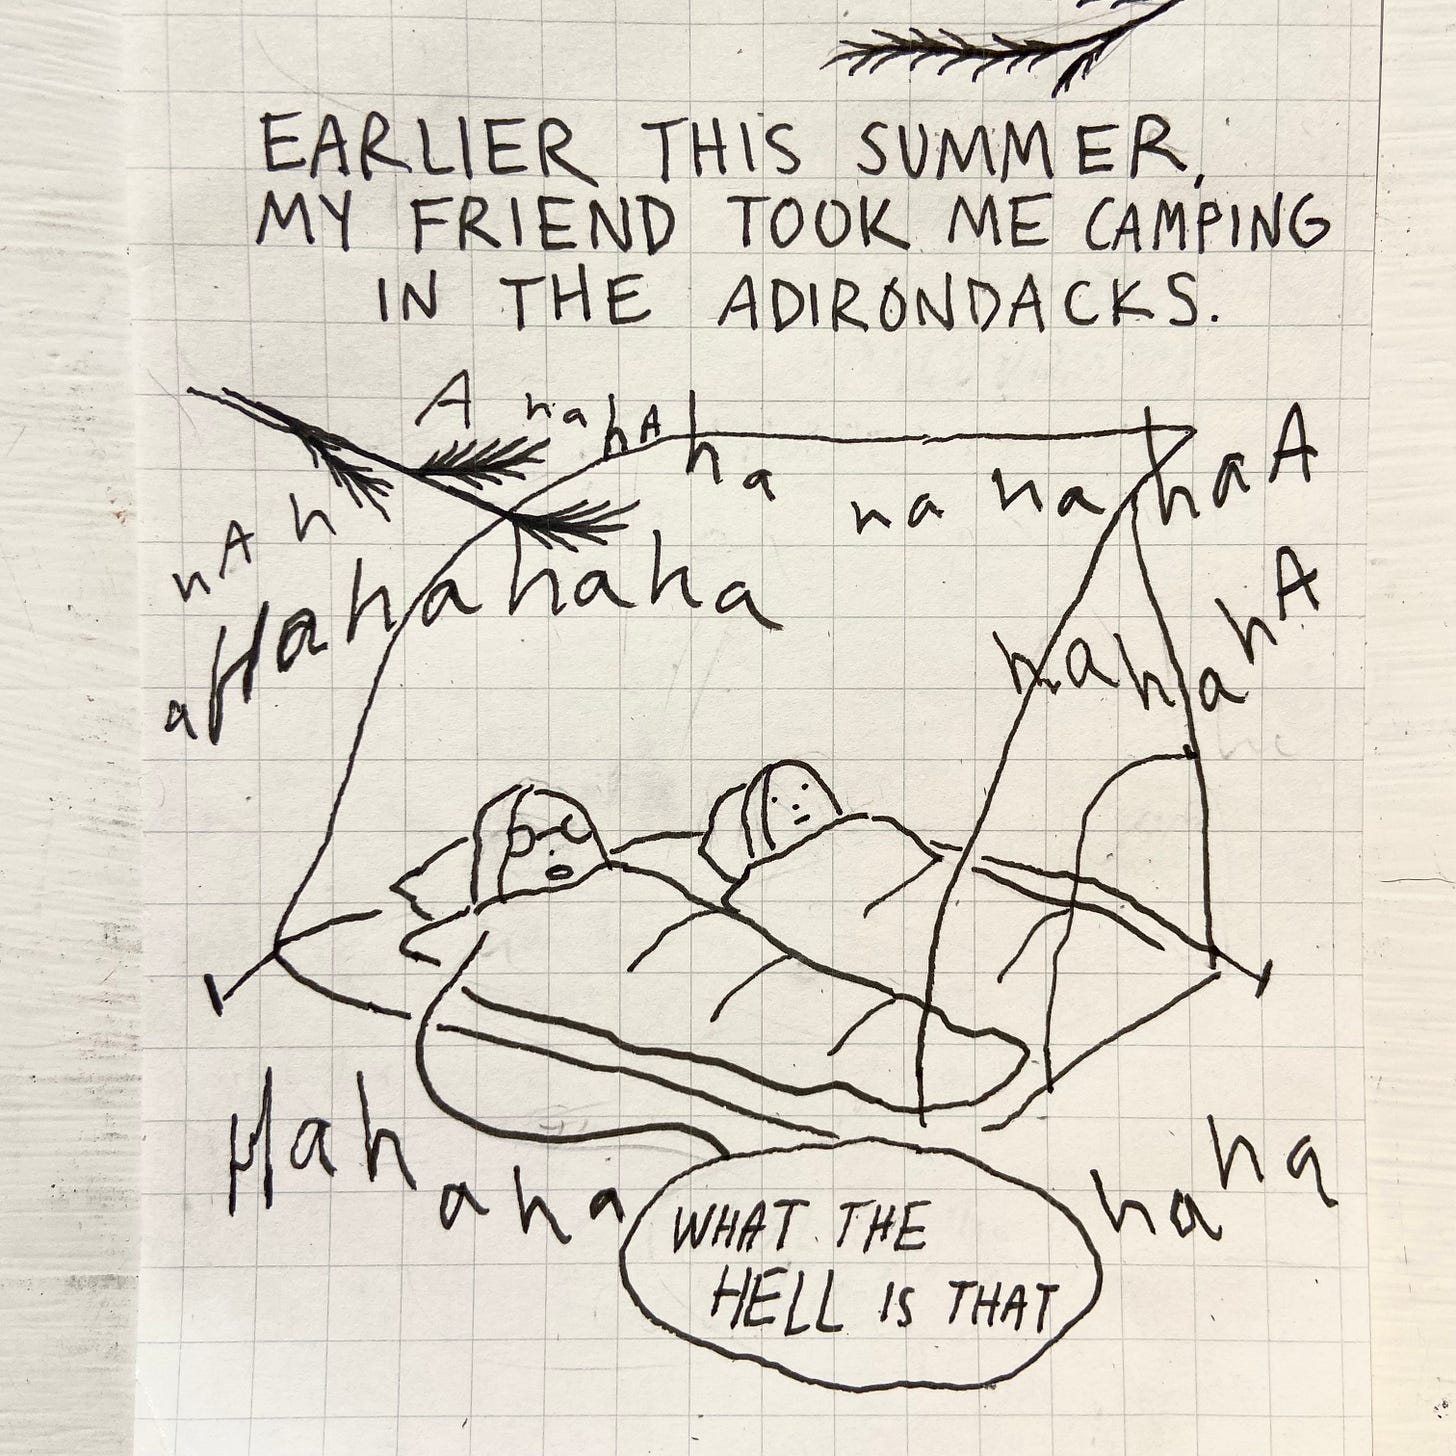 EARLIER THIS SUMMER,
MY FRIEND TOOK ME CAMPING
IN THE ADIRONDACKS.
A hahAha
ha ha haA
hAh
aHahahaha
hahahA
Hahaha
haha
WHAT THE
HELL IS THAT